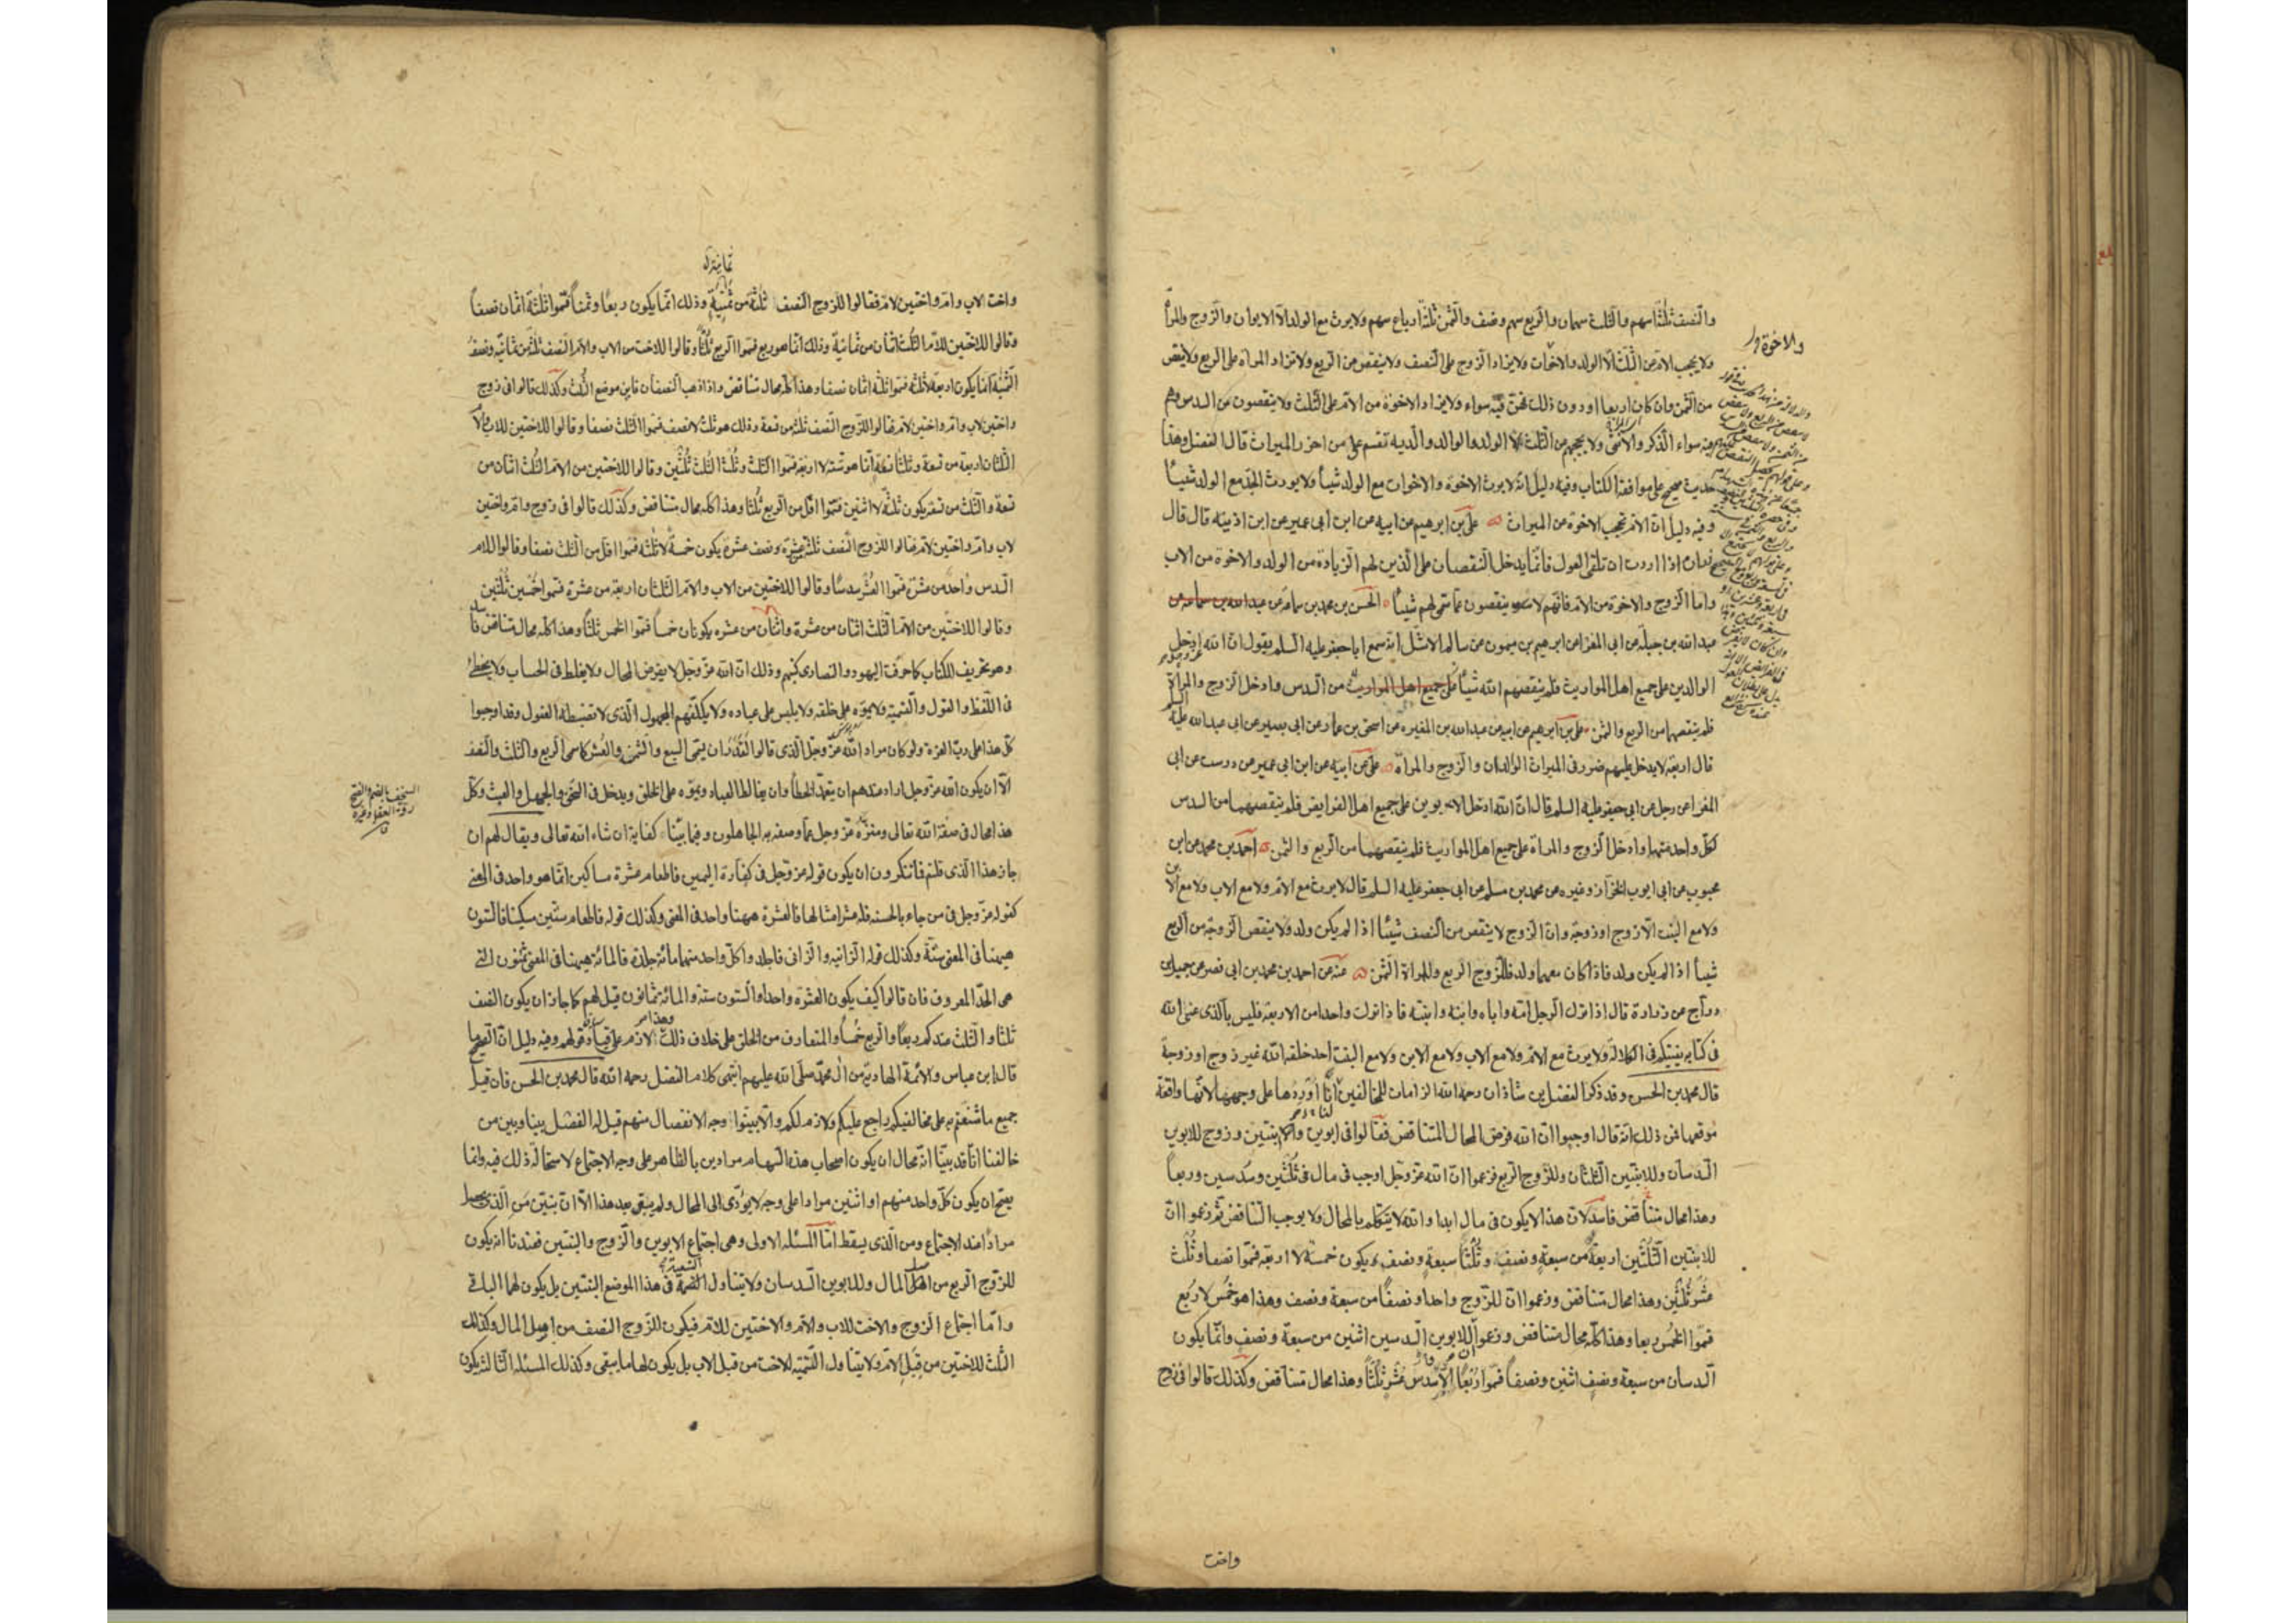 والنصف ثلثة اسهم والثلث سهمان والربع سهم ونصف والثمن ثلثة ارباع سهم ولا يرث مع الولد الا الابوان والزوج والمرأة
ولا يحجب الام من الثلث الا الولد والاخوات ولا يزاد الزوج على النصف ولا ينقص من الربع ولا تزاد المرأة على الربع ولا ينقص
والاخوة
من الثمن وان كان اربعا او دون ذلك فهن فيه سواء ولا يزاد الاخوة من الام على الثلث ولا ينقصون من السدس وهم
فيه سواء الذكر والانثى ولا يحجبهم من الثلث الا الولد والوالد والدية تقسم على من احرز الميراث قال الفضل وهذا
حديث صحيح على موافقة الكتاب وفيه دليل انه لا يرث الاخوة والاخوات مع الولد شيئا ولا يورث الجد مع الولد شيئا
وفيه دليل ان الام تحجب الاخوة من الميراث علي بن ابرهيم عن ابيه عن ابن ابي عمير عن ابن اذينة قال قال
زرارة اذا اردت ان تلقى العول فانما يدخل النقصان على الذين لهم الزيادة من الولد والاخوة من الاب
واما الزوج والاخوة من الام فانهم لا ينقصون مما سمى لهم شيئا الحسن بن محمد بن سماعة عن عبد الله بن سماعة عن
عبد الله بن جبلة عن ابي المغرا عن ابرهيم بن ميمون عن سالم الاشل انه سمع ابا جعفر عليه السلم يقول ان الله ادخل
الوالدين على جميع اهل المواريث فلم ينقصهم الله شيئا على جميع اهل المواريث من السدس وادخل الزوج والمرأة
فلم ينقصهما من الربع والثمن علي بن ابرهيم عن ابيه عن عبد الله بن المغيره عن اسحق بن عمار عن ابي بصير عن ابي عبد الله عليه السلم
قال اربعة لا يدخل عليهم ضرر في الميراث الوالدان والزوج والمرأة علي عن ابيه عن ابن ابي عمير عن درست عن ابي
المغرا عن رجل عن ابي جعفر عليه السلم قال ان الله ادخل الابوين على جميع اهل الفرايض فلم ينقصهما من السدس
لكل واحد منهما وادخل الزوج والمرأة على جميع اهل المواريث فلم ينقصهما من الربع والثمن احمد بن محمد عن ابن
محبوب عن ابي ايوب الخزاز وغيره عن محمد بن مسلم عن ابي جعفر عليه السلم قال لا يرث مع الام ولا مع الاب ولا مع الابن
ولا مع البنت الا زوج او زوجة وان الزوج لا ينقص من النصف شيئا اذا لم يكن ولد ولا ينقص الزوجة من الربع
شيئا اذا لم يكن ولد فاذا كان معهما ولد فللزوج الربع وللمراة الثمن عنه عن احمد بن محمد بن ابي نصر عن جميل بن
دراج عن زرارة قال اذا ترك الرجل امه واباه وابنه وابنته فاذا ترك واحدا من الاربعة فليس بالذي عنى الله
في كتابه يفتيكم في الكلالة ولا يرث مع الام ولا مع الاب ولا مع الابن ولا مع البنت احد خلقه الله غير زوج او زوجة
قال محمد بن الحسن وقد ذكر الفضل بن شاذان رحمه الله الزامات للمخالفين انا اوردها على وجهها لانها واقعة
موقعها فمن ذلك انه قال اوجبوا ان الله فرض المحال المتناقض فقالوا في ابوين وابنتين وزوج للابوين
السدسان وللابنتين الثلثان وللزوج الربع فزعموا ان الله عز وجل اوجب في مال في ثلثين وسدسين وربعا
وهذا محال متناقض فاسد لان هذا لا يكون في مال ابدا والله لا يتكلم بالمحال ولا يوجب التناقض ثم زعموا ان
للابنتين الثلثين اربعة من سبعة ونصف وثلثا سبعة ونصف يكون خمسة لا اربعة فسموا نصفا وثلث
عشر ثلثين وهذا محال متناقض وزعموا ان للزوج واحدا ونصفا من سبعة ونصف وهذا هو خمس لا ربع
فسموا الخمس ربعا وهذا كله محال متناقض وزعموا للابوين السدسين اثنين من سبعة ونصف وانما يكون
السدسان من سبعة ونصف اثنين ونصفا فسموا ربعا الا سدس عشر ثلثا وهذا محال متناقض وكذلك قالوا في زوج
واخت
واخت لاب وام واختين لام فقالوا للزوج النصف ثلثة من ثمنية وذلك انما يكون ربعا وثمنا فسموا ثلثة اثمان نصفا
وقالوا للاختين للام الثلث اثنان من ثمانية وذلك انما هو ربع فسموا الربع ثلثا وقالوا للاخت من الاب والام النصف ثلثة من ثمانية ونصف
الثمنية انما يكون اربعة لا ثلثة فسموا ثلثة اثمان نصفا وهذا كله محال متناقض واذا ذهب النصفان فاين موضع الثلث وكذلك قالوا في زوج
واختين لاب وام واختين لام فقالوا للزوج النصف ثلثة من تسعة وذلك هو ثلث لا نصف فسموا الثلث نصفا وقالوا للاختين للاب والام
الثلثان اربعة من تسعة وثلثا تسعة انما هو ستة لا اربعة فسموا الثلث وثلث الثلث ثلثين وقالوا للاختين من الام الثلث اثنان من
تسعة والثلث من تسعة يكون ثلثة لا اثنين فسموا اقل من الربع ثلثا وهذا كله محال متناقض وكذلك قالوا في زوج وام واختين
لاب وام واختين لام فقالوا للزوج النصف ثلثة من عشرة ونصف عشرة يكون خمسة لا ثلثة فسموا اقل من الثلث نصفا وقالوا للام
السدس واحد من عشرة فسموا العشر سدسا وقالوا للاختين من الاب والام الثلثان اربعة من عشرة فسموا خمسين ثلثين
وقالوا للاختين من الام الثلث اثنان من عشرة واثنان من عشره يكونان خمسا فسموا الخمس ثلثا وهذا كله محال متناقض فاسد
وهو تحريف للكتاب كما حرفت اليهود والنصارى كتبهم وذلك ان الله عز وجل لا يفرض المحال ولا يغلط في الحساب ولا يخطئ
في اللفظ والقول والتسمية ولا يموه على خلقه ولا يلبس على عباده ولا يكلفهم المجهول الذي لا تضبطه العقول وقد اوجبوا
كل هذا على رب العزة ولو كان مراد الله عز وجل الذي قالوا لقدر ان يسمى السبع والثمن والعشر كما سمى الربع والثلث والنصف
الا ان يكون الله عز وجل اراد عندهم ان يتعمد الخطأ وان يغالط العباد ويموه على الخلق ويدخل في السخف والجهل والعبث وكل
السخف بالضم والفتح
رقة العقل وغيره
هذا محال في صفة الله تعالى ومنزه عز وجل عما وصفه به الجاهلون وفيما بينا كفاية ان شاء الله تعالى ويقال لهم ان
جاز هذا الذي قلتم فما تنكرون ان يكون قوله عز وجل في كفارة اليمين فاطعام عشرة مساكين انما هو واحد في المعنى
كقوله عز وجل في من جاء بالحسنة فله عشر امثالها فالعشرة ههنا واحد في المعنى وكذلك قوله فاطعام ستين مسكينا فالستون
هيهنا في المعنى ستة وكذلك قوله الزانية والزاني فاجلدوا كل واحد منهما مائة جلدة فالمائة هيهنا في المعنى ثمنون التي
هي الحد المعروف فان قالوا كيف يكون العشرة واحدا والستون ستة والمائة ثمانون قيل لهم كما جاز ان يكون النصف
ثلثا والثلث عندكم ربعا والربع خمسا والمتعارف من الخلق على خلاف ذلك وهذا لازم على قياد قولهم وفيه دليل ان الصحيح ما
قال ابن عباس والائمة الهادية من ال محمد صلى الله عليهم انتهى كلام الفضل رحمه الله قال محمد بن الحسن فان قيل
جميع ما شنعتم به على مخالفيكم راجع عليكم ولازم لكم والا بينوا وجه الانفصال منهم قيل له الفصل بيننا وبين من
خالفنا انا قد بينا انه محال ان يكون اصحاب هذه السهام مرادين بالظاهر على وجه الاجتماع لاستحالة ذلك فيه وانما
يصح ان يكون كل واحد منهم او اثنين مرادا على وجه لا يؤدى الى المحال ولم يبقى بعد هذا الا ان نبين من الذي يحصل
مرادا عند الاجتماع ومن الذي يسقط اما المسئلة الاولى وهي اجتماع الابوين والزوج والبنتين فعندنا انه يكون
للزوج الربع من اصل المال وللابوين السدسان ولا يتناول التسمية في هذا الموضع البنتين بل يكون لهما الباقي
واما اجتماع الزوج والاخت للاب والام والاختين للام فيكون للزوج النصف من اصل المال وكذلك
الثلث للاختين من قبل الام ولا يتناول التسمية للاخت من قبل الاب بل يكون لها ما يبقى وكذلك المسئلة الثالثة يكون